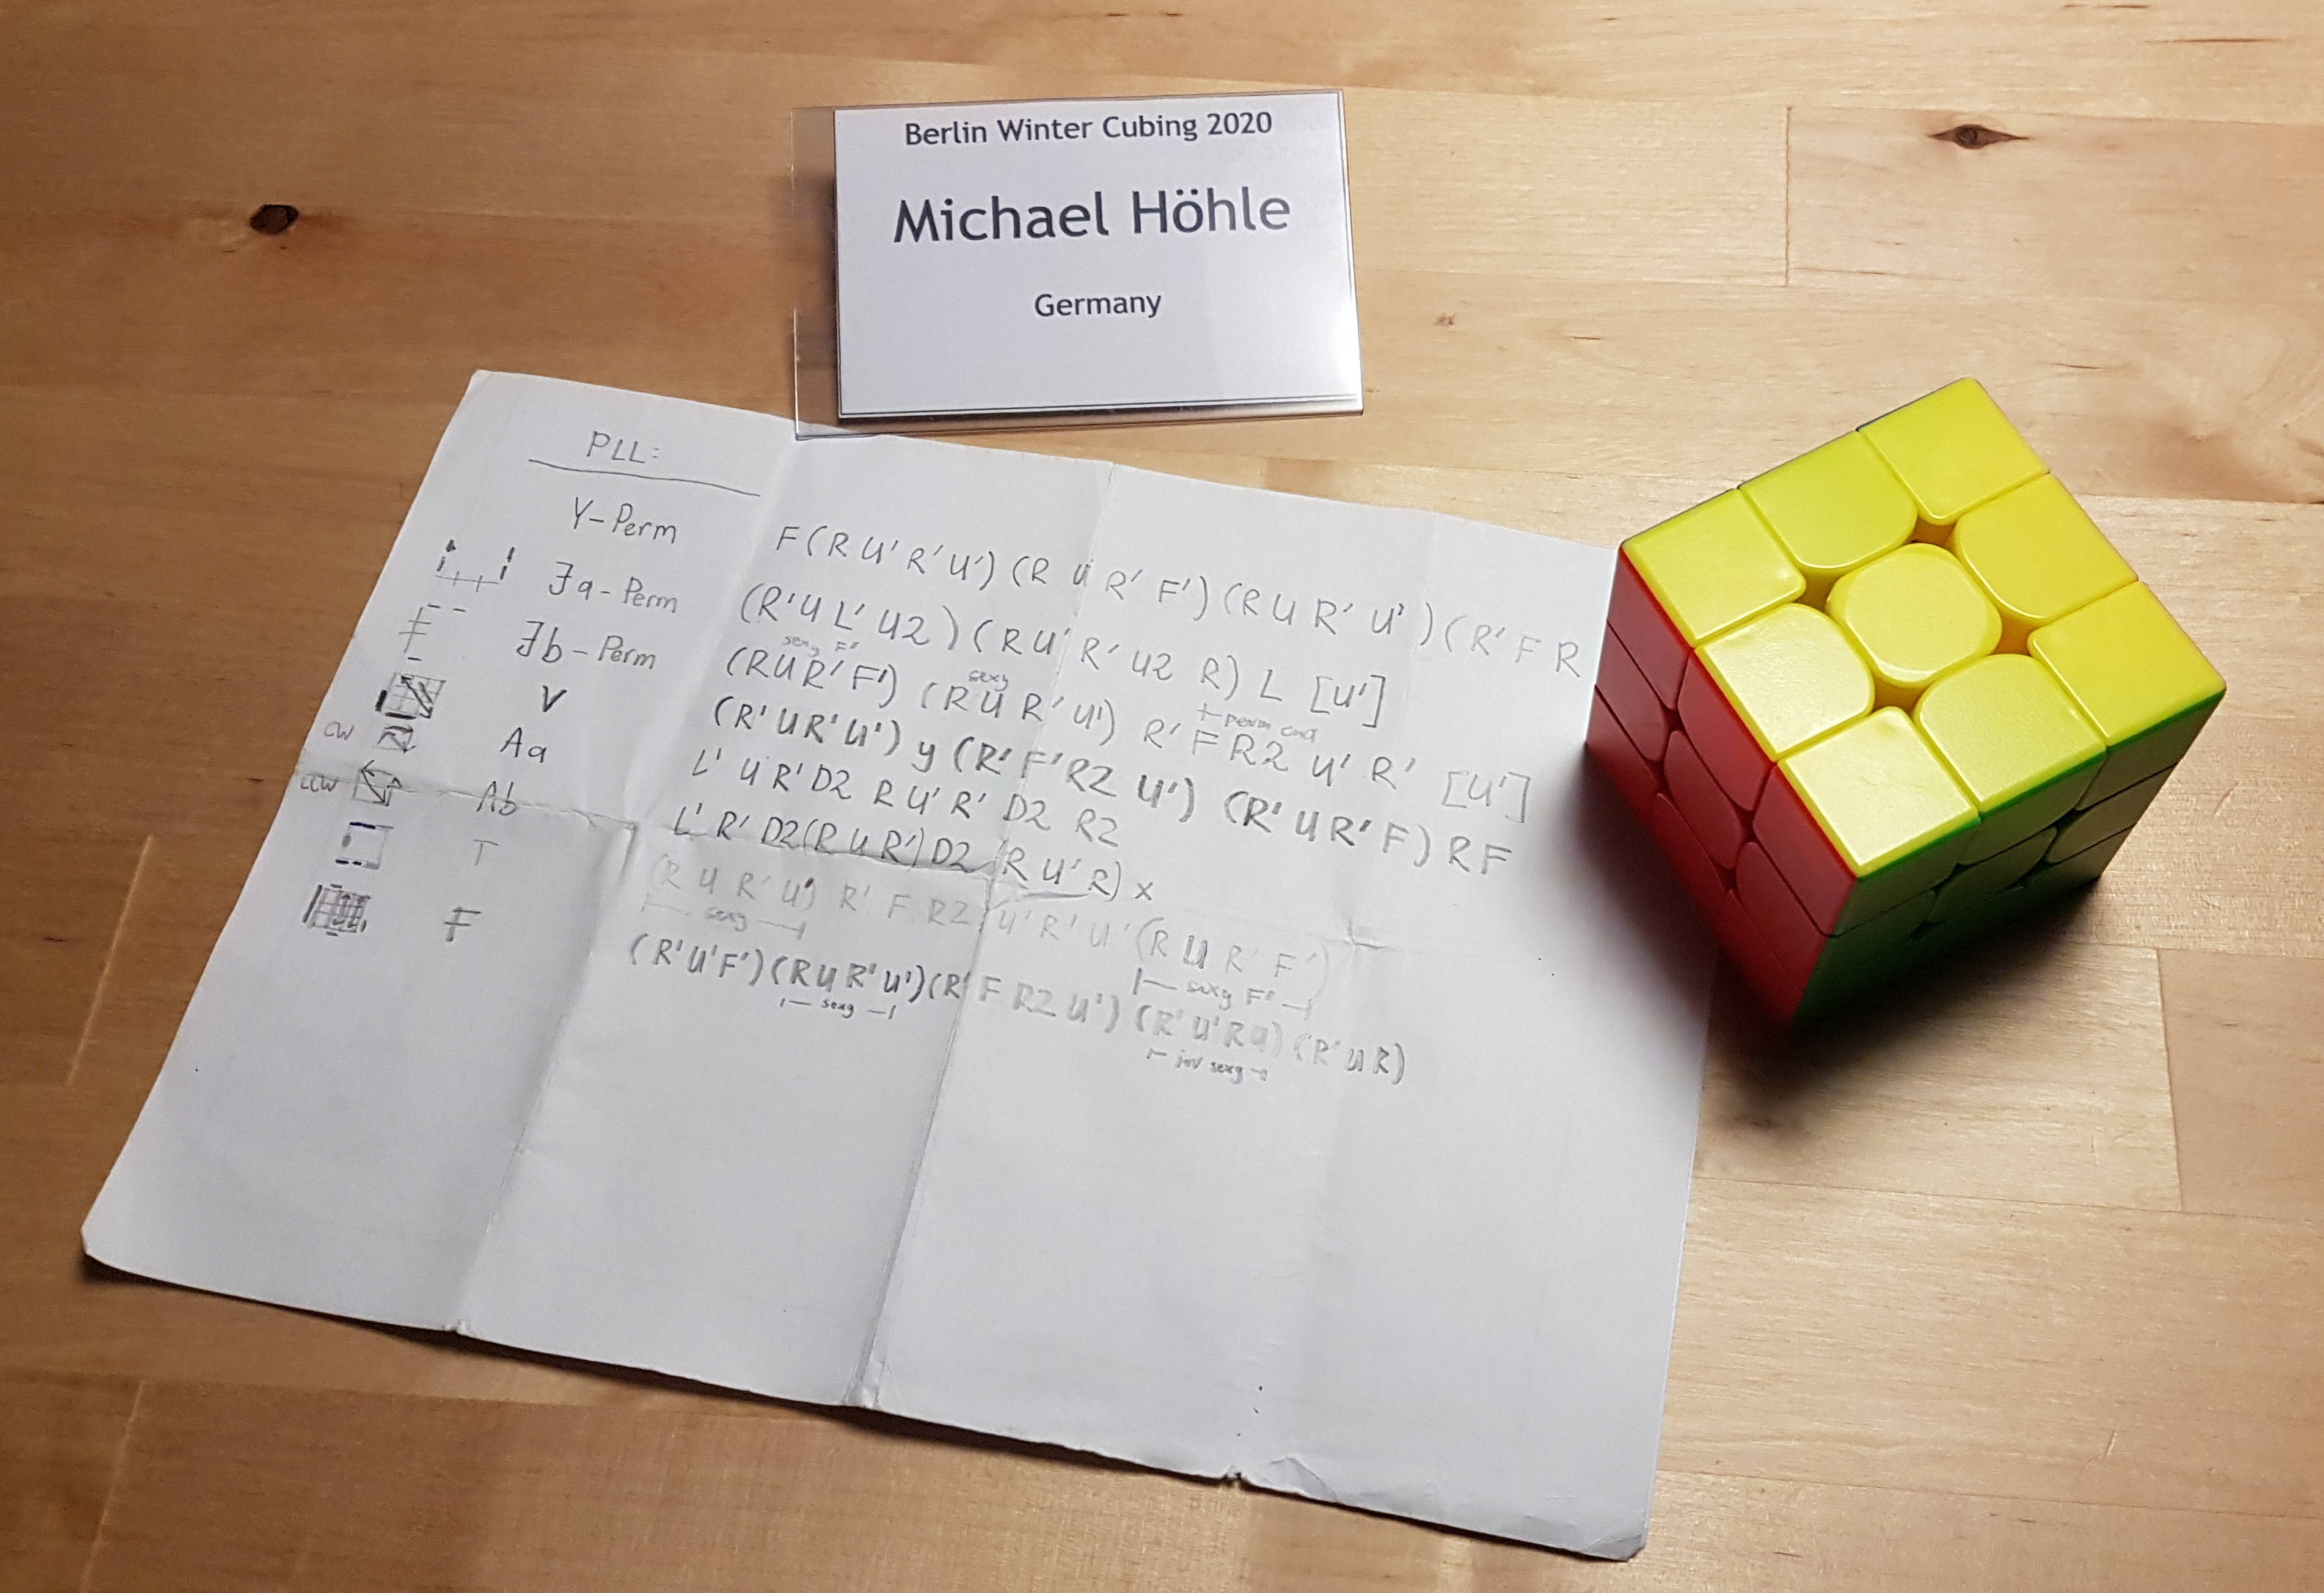 Berlin Winter Cubing 2020
Michael Höhle
Germany
PLL:
Y-Perm F(R U' R' U') (R U R' F') (R U R' U') (R' F R
Ja-Perm (R' U L' U2) (R U' R' U2 R) L [U']
sexy F' sexy T-perm end
Jb-Perm (R U R' F') (R U R' U') R' F R2 U' R' [U']
V (R' U R' U') y (R' F' R2 U') (R' U R' F) R F
CW Aa L' U R' D2 R U' R' D2 R2
CCW Ab L' R' D2 (R U R') D2 (R U' R) x
T (R U R' U') R' F R2 U' R' U' (R U R' F')
sexy sexy F'
F (R' U' F') (R U R' U') (R' F R2 U') (R' U' R U) (R' U R)
sexy inv sexy